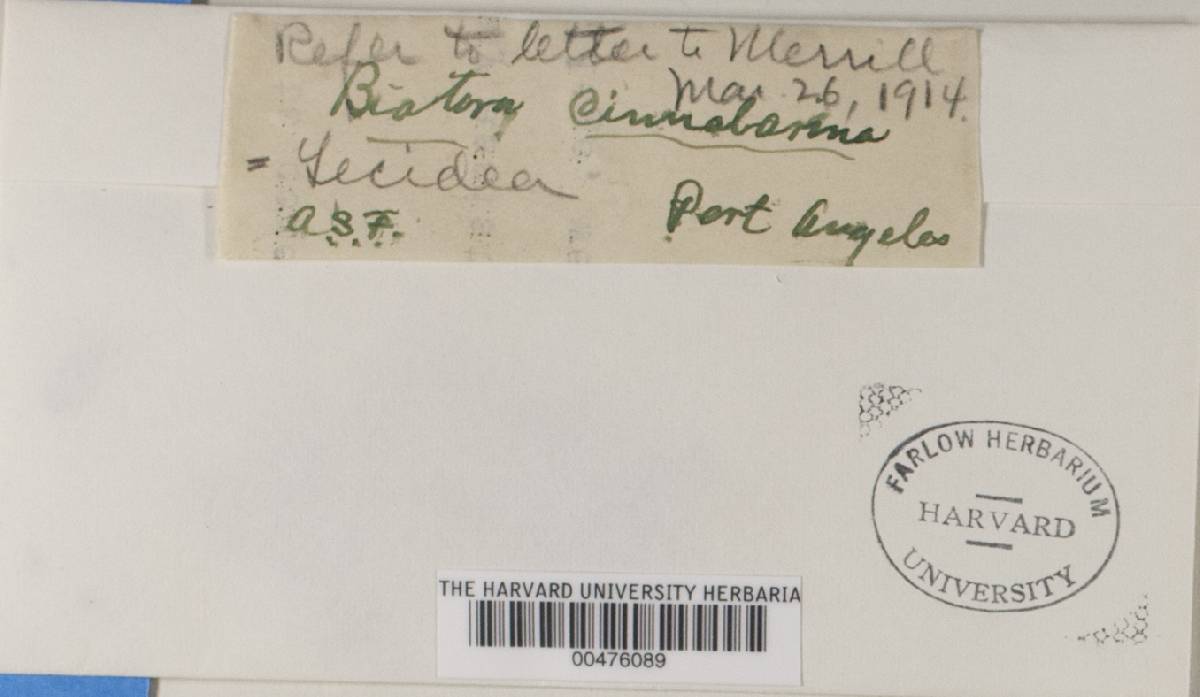 Refer to letter to Merrill
Mar. 26, 1914.
Biatora cinnabarina
= Lecidea
A.S.F.
Port Angeles
FARLOW HERBARIUM
HARVARD
UNIVERSITY
THE HARVARD UNIVERSITY HERBARIA
00476089